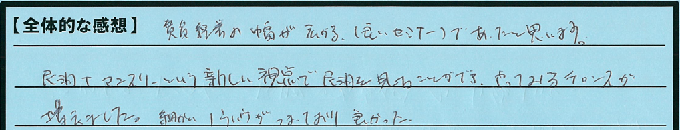 【全体的な感想】 賃貸経営の幅が広がる、(良いセミナー)であったと思います。
民泊+マンスリーという新しい視点で民泊を見ることができ、やってみるチャンスが
増えました。細かいノウハウがつまっており良かった。